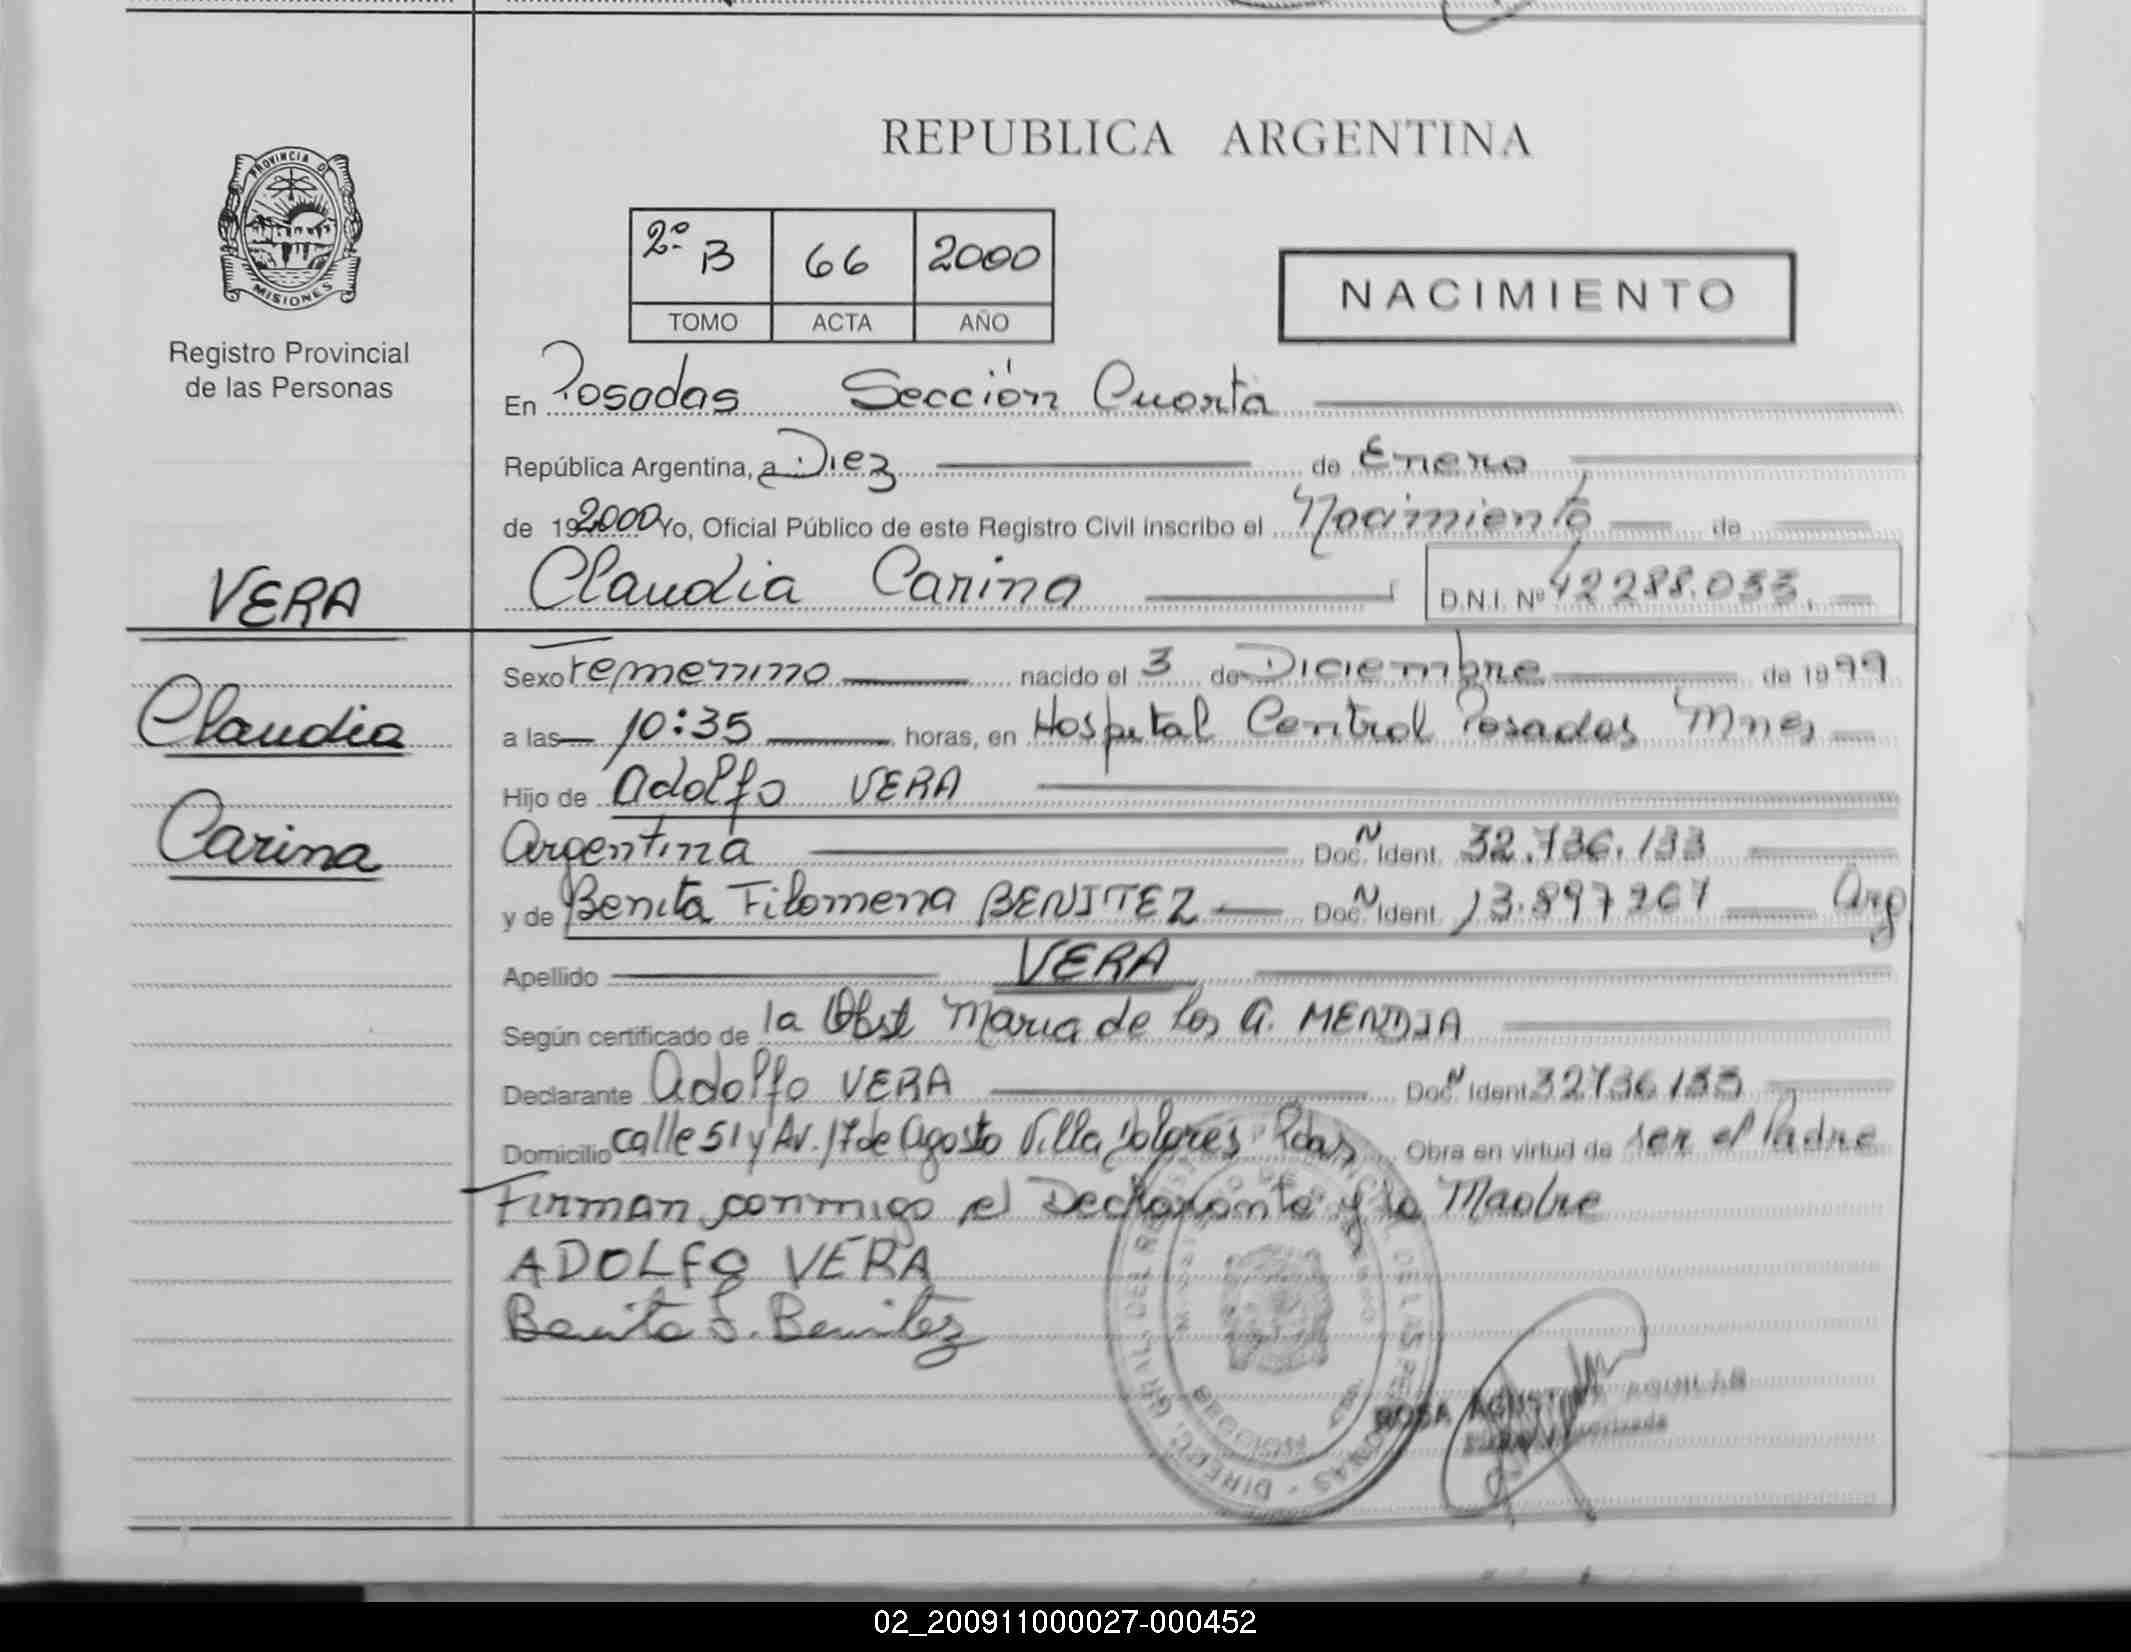 REPUBLICA ARGENTINA
PROVINCIA D
MISIONES
Registro Provincial
de las Personas
2º B 66 2000
TOMO ACTA AÑO
NACIMIENTO
En Posadas Sección Cuarta
República Argentina, a Diez de Enero
de 19 2000 Yo, Oficial Público de este Registro Civil inscribo el Nacimiento de
VERA
Claudia Carina
D.N.I. Nº 42288.033.
Sexo Femenino nacido el 3 de Diciembre de 1999
Claudia
a las 10:35 horas, en Hospital Central Posadas Mnes
Hijo de Adolfo VERA
Carina
Argentina Doc. N Ident. 32.736.133
y de Benita Filomena BENITEZ Doc. N Ident. 13.897267 Arg
Apellido VERA
Según certificado de la Obst Maria de los A. MENDIA
Declarante Adolfo VERA Doc. N Ident. 32736133
Domicilio calle 51 y Av. 17 de Agosto Villa Dolores Pdas Obra en virtud de ser el Padre
Firman conmigo el Declarante y la Madre
ADOLFO VERA
Benita F. Benitez
DE LAS PERSONAS - DIREC. GRAL. DEL
ROSA
02_200911000027-000452